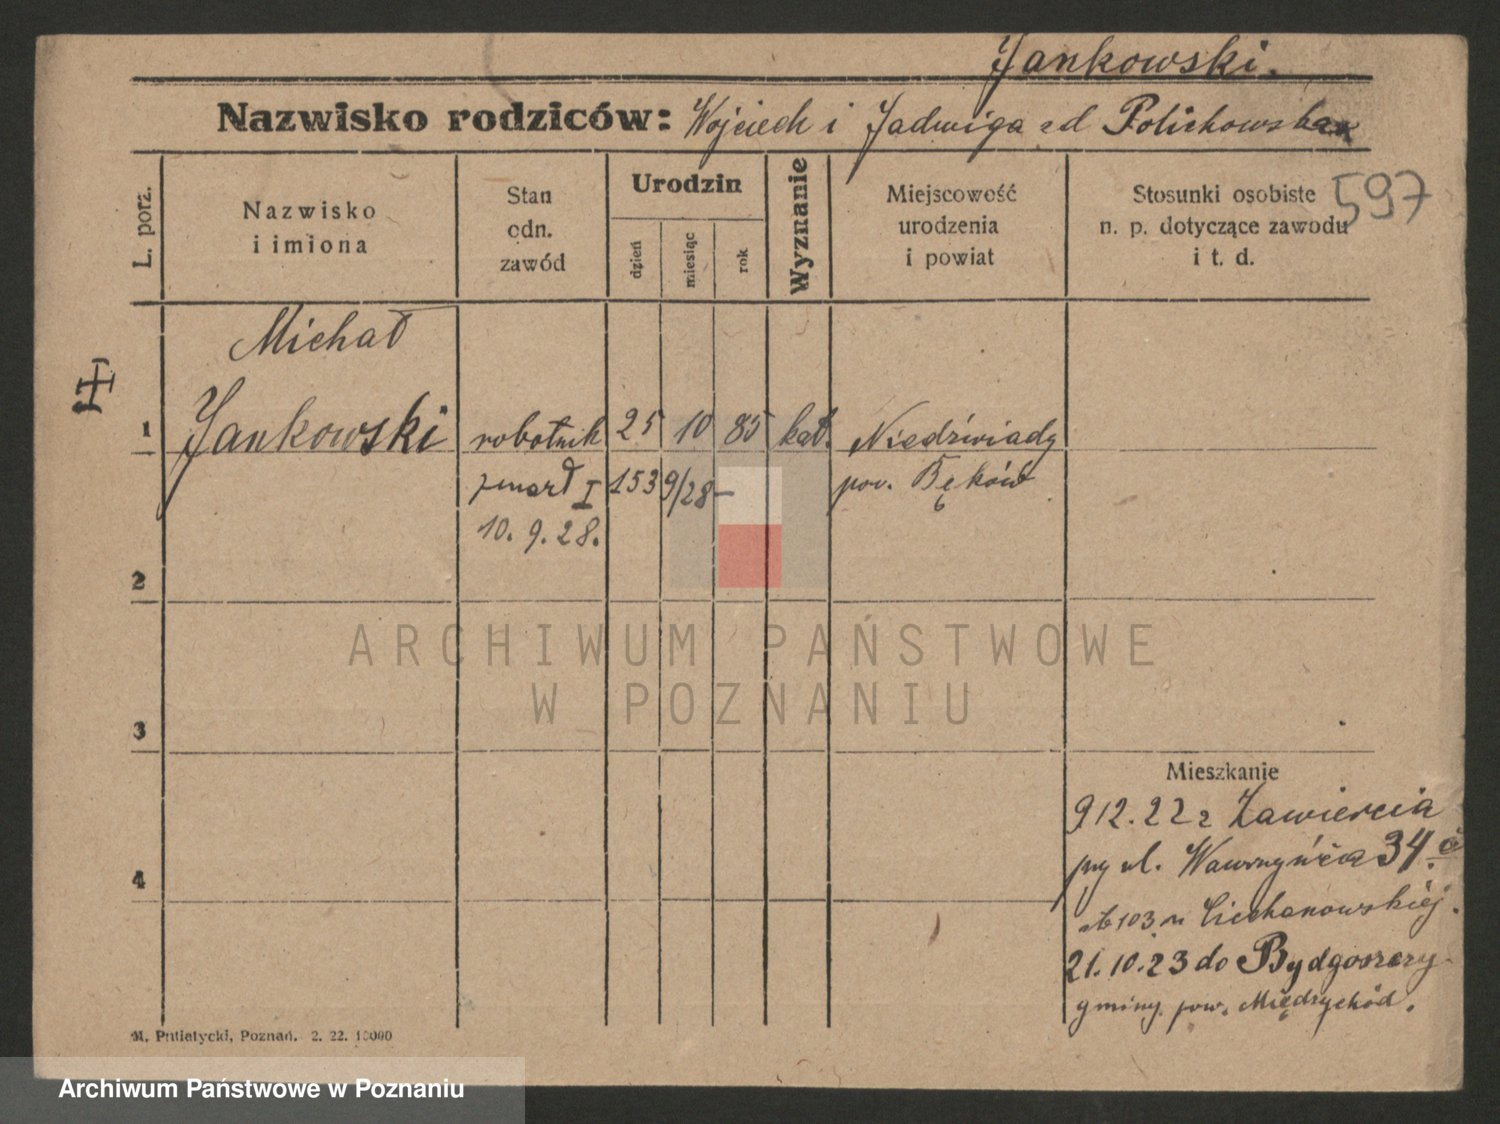 Jankowski.
Nazwisko rodziców: Wojciech i Jadwiga zd Polichowska
597
L. porz.
Nazwisko i imiona
Stan odn. zawód
Urodzin
dzień
miesiąc
rok
Wyznanie
Miejscowość urodzenia i powiat
Stosunki osobiste n. p. dotyczące zawodu i t. d.
Michał
1 Jankowski robotnik 25 10 85 kat. Niedźwiady
zmarł I 153 9/28 – pow.
10. 9. 28.
2
3
ARCHIWUM PAŃSTWOWE
W POZNANIU
4
Mieszkanie
9 12. 22 z Zawiercia
przy ul. Wawrzyńca 34.
103 u Ciechanowskiej.
21. 10. 23 do Bydgoszczy
gminy pow. Międzychód.
M. Putiatycki, Poznań. 2. 22. 10000
Archiwum Państwowe w Poznaniu